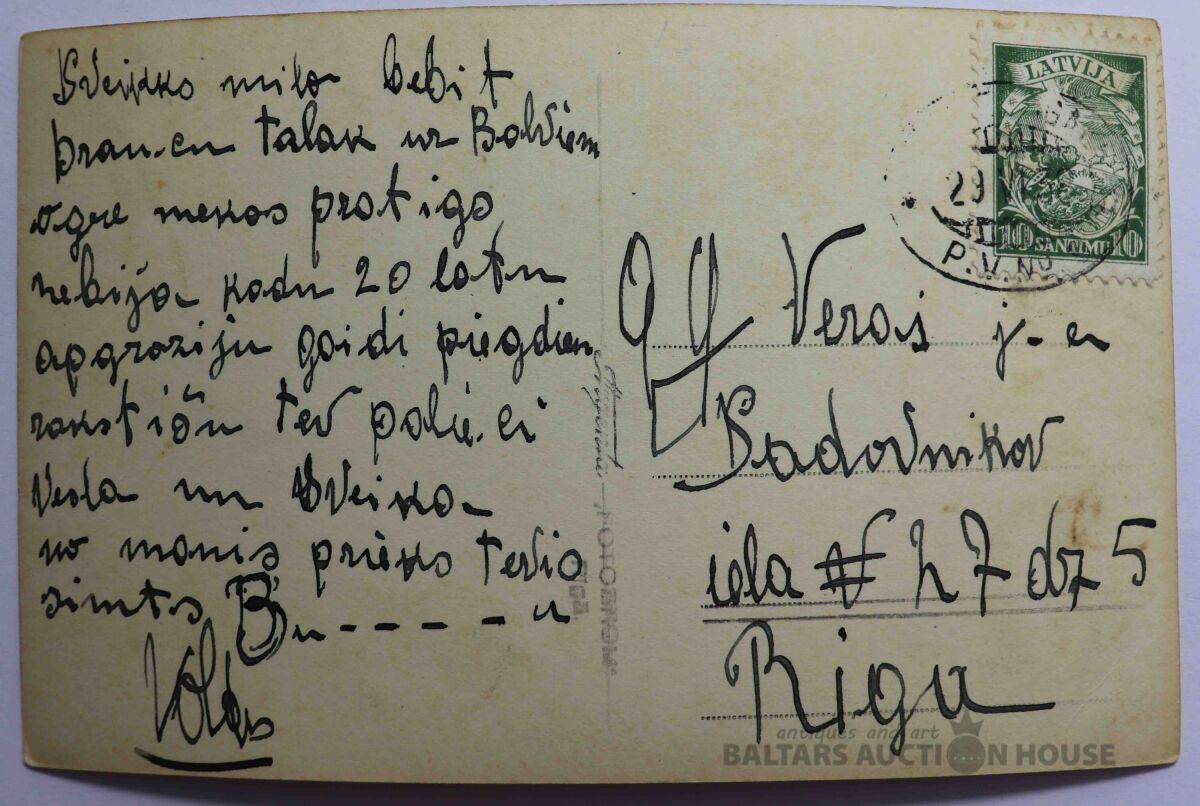 Sveiko milo bebit
brau.cu talak uz Balviem
ogre nekas protigs
nebija kadu 20 latu
apgroziju gaidi piegdien
rakstišu tev palie.ci
Vesla un Sveika
no manis prieks tevis
simts Bu-----u
Voldis
LATVIJA
10 SANTIMU 10
29
P.V. No
Veras j-a
Sadovnikov
iela № 27 dz 5
Riga
FOTOCENTRS
antiques and art
BALTARS AUCTION HOUSE